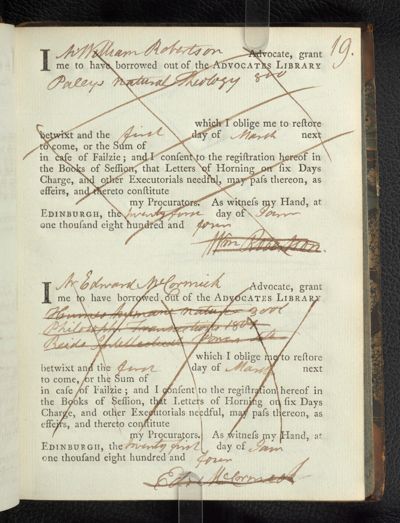 19.
I Mr William Robertson Advocate, grant
me to have borrowed out of the ADVOCATES LIBRARY
Paleys Natural Theology 800
which I oblige me to reſtore
betwixt and the first day of March next
to come, or the Sum of
in caſe of Failzie; and I conſent to the regiſtration hereof in
the Books of Seſſion, that Letters of Horning on ſix Days
Charge, and other Executorials needful, may paſs thereon, as
effeirs, and thereto conſtitute
my Procurators. As witneſs my Hand, at
EDINBURGH, the twenty first day of Janu
one thouſand eight hundred and four
Wm Robertson.
I Mr Edward McCormick Advocate, grant
me to have borrowed out of the ADVOCATES LIBRARY
human nature
Reids Intellectual Powers
which I oblige me to reſtore
betwixt and the first day of March next
to come, or the Sum of
in caſe of Failzie; and I conſent to the regiſtration hereof in
the Books of Seſſion, that Letters of Horning on ſix Days
Charge, and other Executorials needful, may paſs thereon, as
effeirs, and thereto conſtitute
my Procurators. As witneſs my Hand, at
EDINBURGH, the twenty first day of Jan
one thouſand eight hundred and four
Edw McCormick